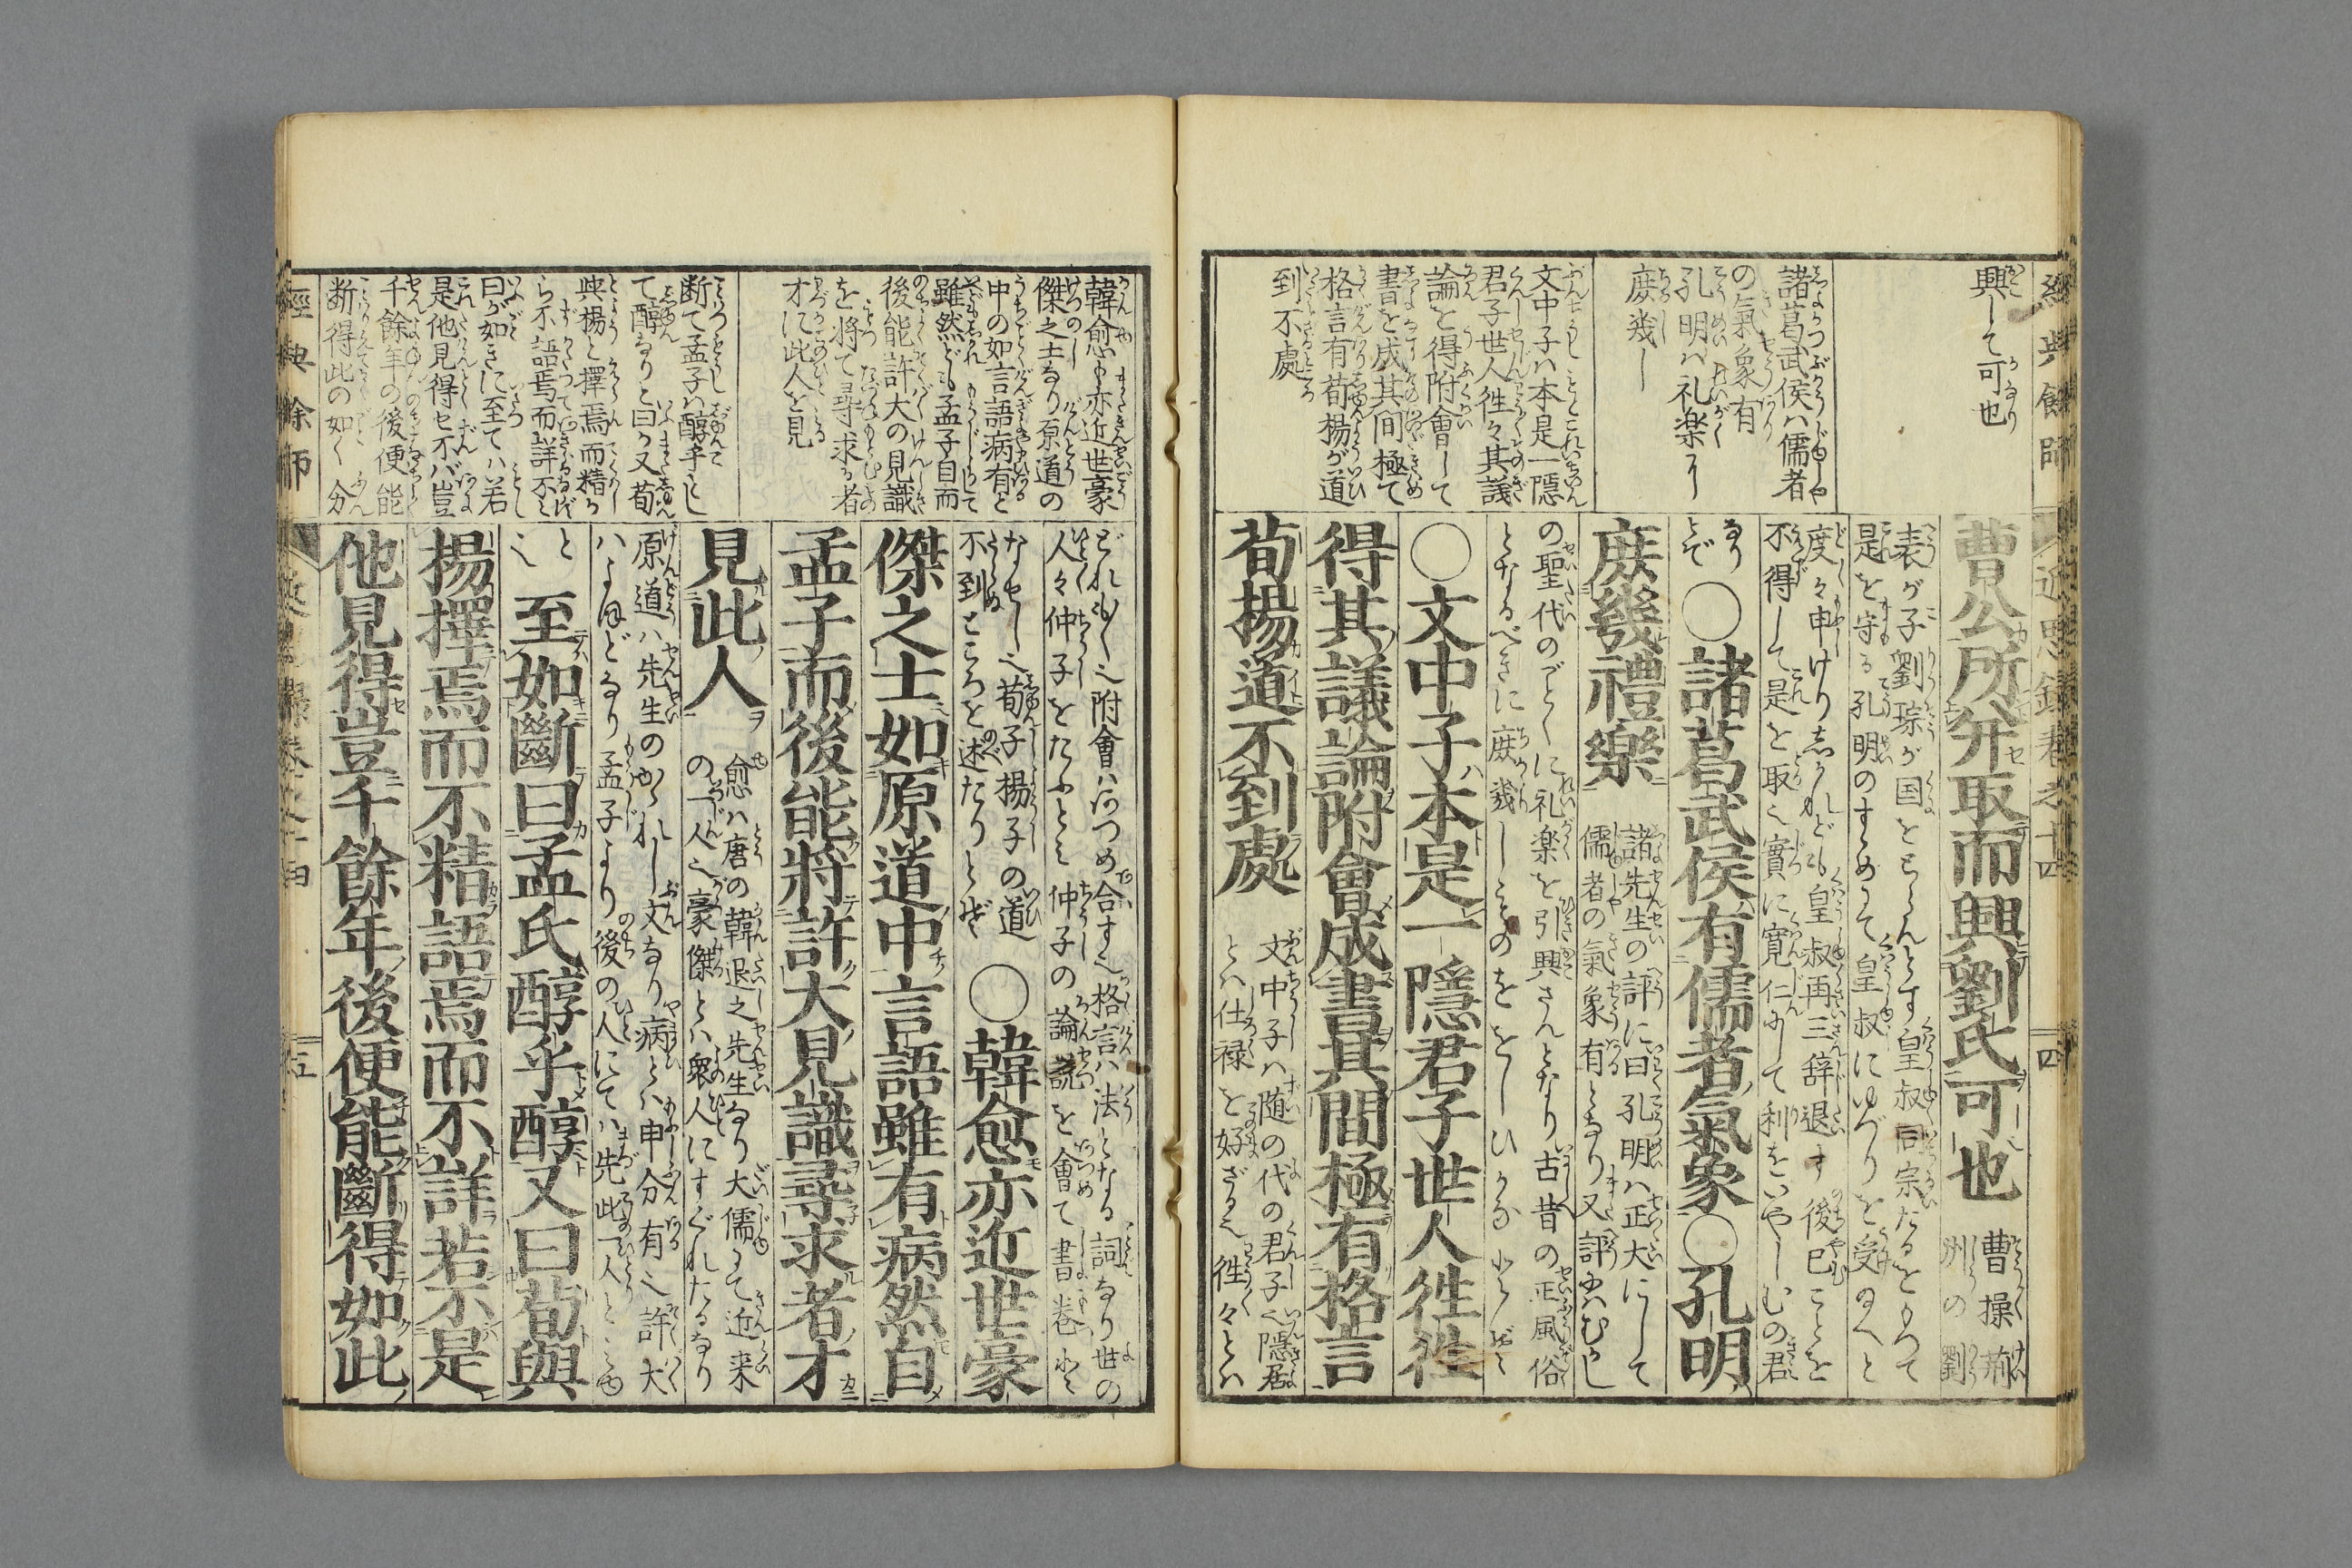 經典餘師
近思録卷之十四
四
興して可也
諸葛武侯ハ儒者
の氣象有
孔明ハ礼楽に
庶幾し
文中子ハ本是一隱
君子世人徃々其議
論を得附會して
書を成其間極て
格言有荀揚が道
到不處
曹公所幷取而興劉氏可也
曹操荊
州の劉
表が子劉琮が国をとらんとす皇叔同宗たるをもつて
是を守る孔明のすゝめにて皇叔にゆづりを受めへと
度々申けりしかれども皇叔再三辞退す後已ことを
不得して是を取実に寛仁にして利をいやしむの君
なり
とぞ
〇諸葛武侯有儒者氣象〇孔明
庶幾禮樂
諸先生の評に曰孔明ハ正大にして
儒者の氣象有となり又評にハむかし
の聖代のごとくに礼楽を引興さんとなり古昔の正風俗
となるべきに庶幾しきものををしひかな
〇文中子本是一隱君子世人徃徃
得其議論附會成書其間極有格言
荀揚道不到處
文中子ハ随の代の君子也隱居
とハ仕禄を好ざる也徃々とハ
韓愈も亦近世豪
傑之士なり原道の
中の如言語病有と
雖然ども孟子自而
後能許大の見識
を將て尋求る者
才に此人を見
断て孟子ハ醇乎し
て醇なりと曰る又荀
與揚と擇焉而精か
ら不語焉而詳不と
曰が如きに至てハ若
是他見得セ不バ豈
千餘年の後便能
断得此の如く分
附會ハあつめ合す也格言ハ法となる詞なり世の
人々仲子をたふとみ仲子の論説を會て書巻と
なせし也荀子揚子の道
不到ところを述たりとぞ
〇韓愈亦近世豪
傑之士如原道中言語雖有病然自
孟子而後能將許大見識尋求者才
見此人
愈ハ唐の韓退之先生なり大儒にて近来
の一人也豪傑とハ衆人にすぐれたるなり
原道ハ先生のかゝれし文なり病とハ申分有也許大
ハよほどなり孟子より後の人にてハ先此一人と
と
至如斷曰孟氏醇乎醇又曰荀與
揚擇焉而不精語焉而不詳若不是
他見得豈千餘年後便能斷得如此
經典餘師
五